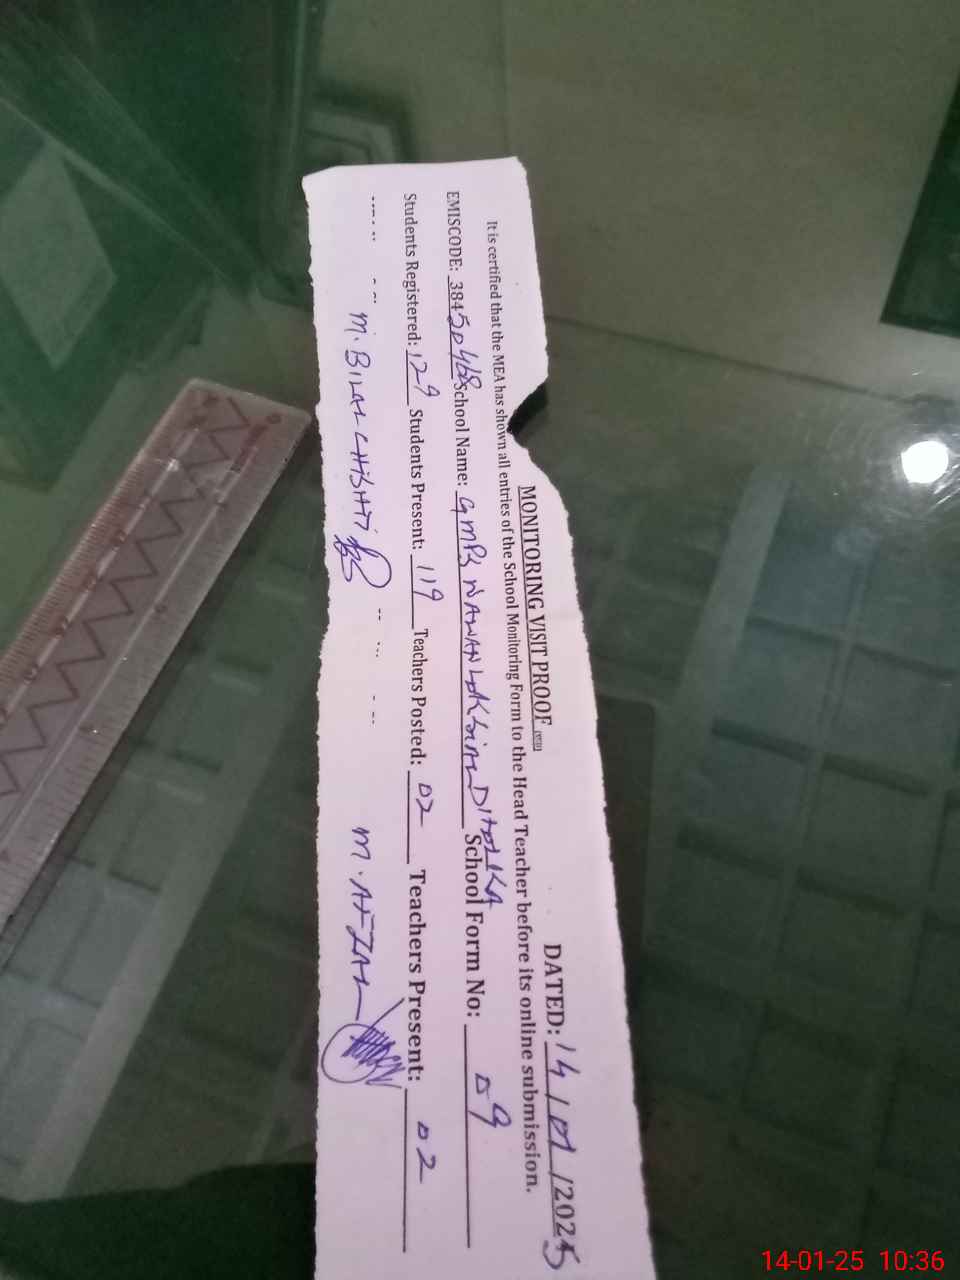 MONITORING VISIT PROOF
DATED: 14/01/2025
It is certified that the MEA has shown all entries of the School Monitoring Form to the Head Teacher before its online submission.
EMISCODE: 38450468 School Name: GMPS NAWAN School Form No: 09
Students Registered: 129 Students Present: 119 Teachers Posted: 02 Teachers Present: 02
M. BILAL CHISHTI M. AFZAL
14-01-25 10:36